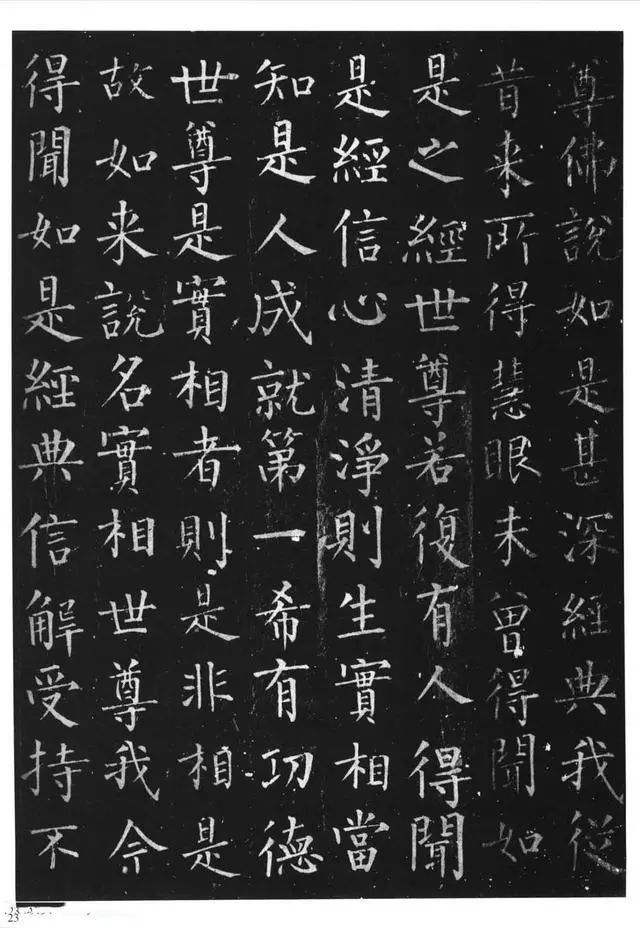 尊佛說如是甚深經典我從
昔来所得慧眼未曾得聞如
是之經世尊若復有人得聞
是經信心清淨則生實相當
知是人成就第一希有功德
世尊是實相者則是非相是
故如来說名實相世尊我今
得聞如是經典信解受持不
23